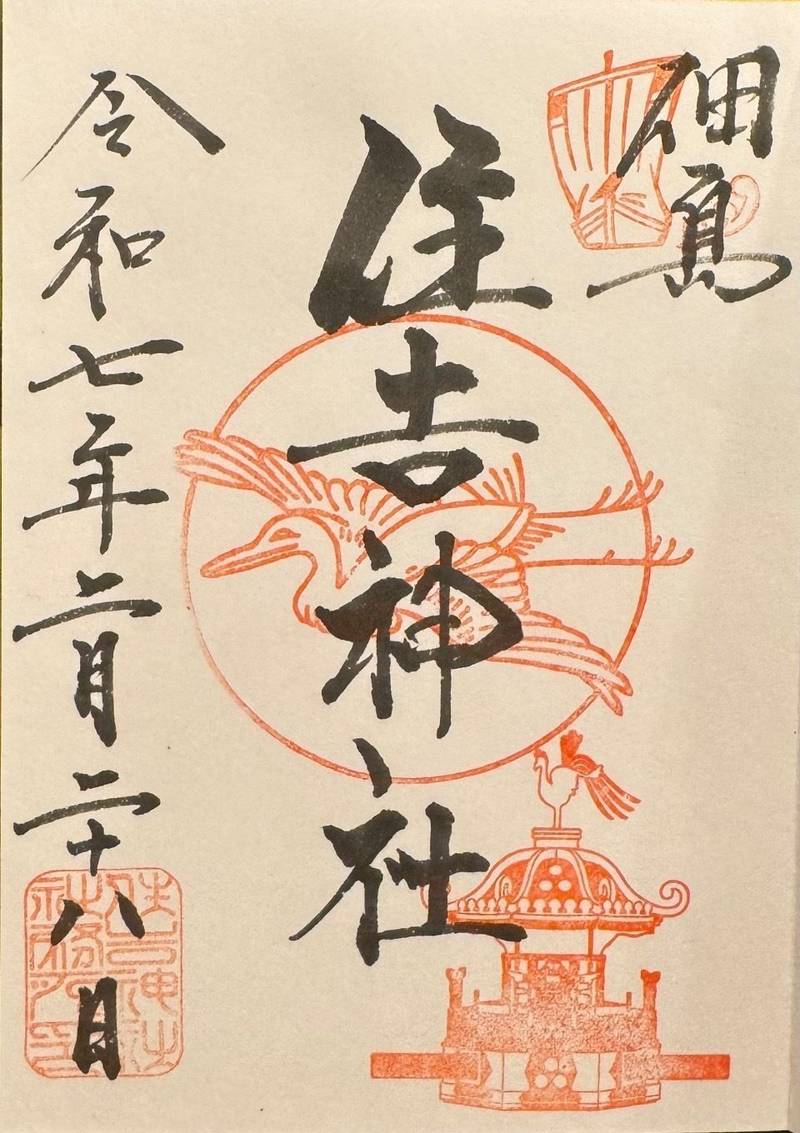 佃島
住吉神社
令和七年二月二十八日
住吉神社
社務所印